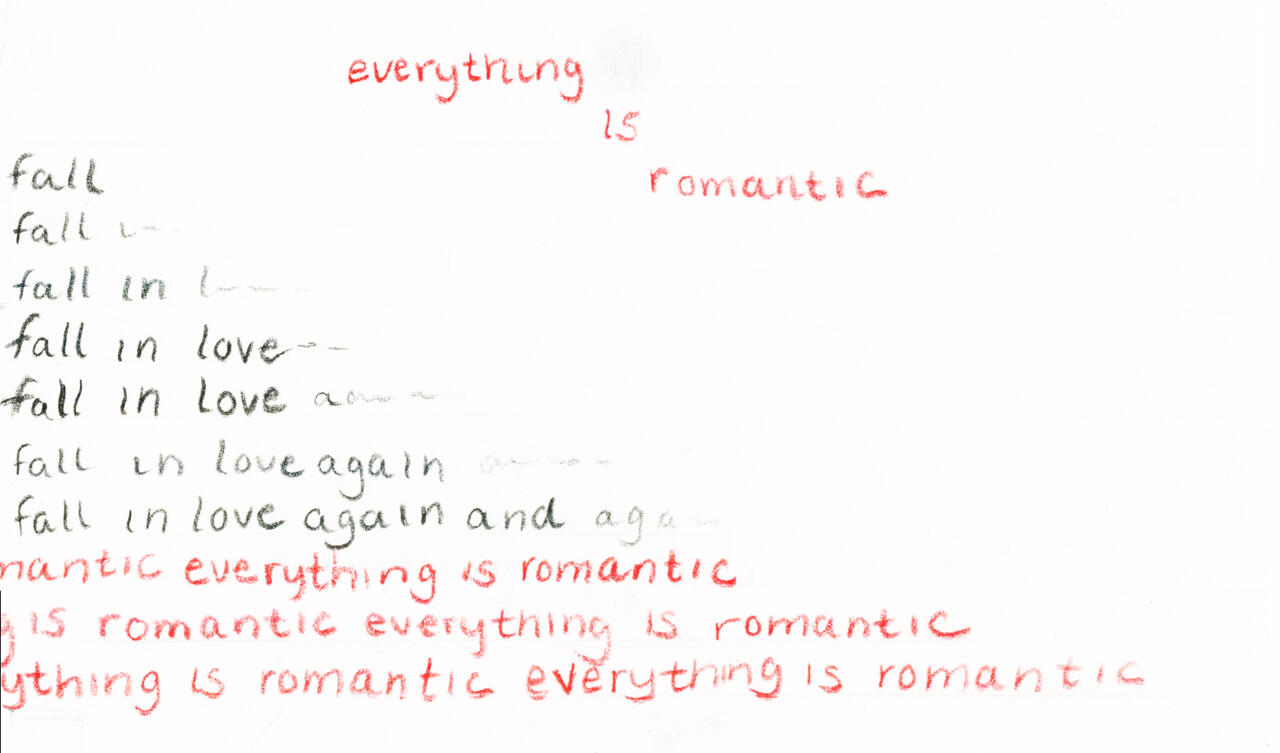 everything
is
romantic
fall
fall
fall in l
fall in love
fall in love a
fall in love again a
fall in love again and aga
mantic everything is romantic
g is romantic everything is romantic
ything is romantic everything is romantic